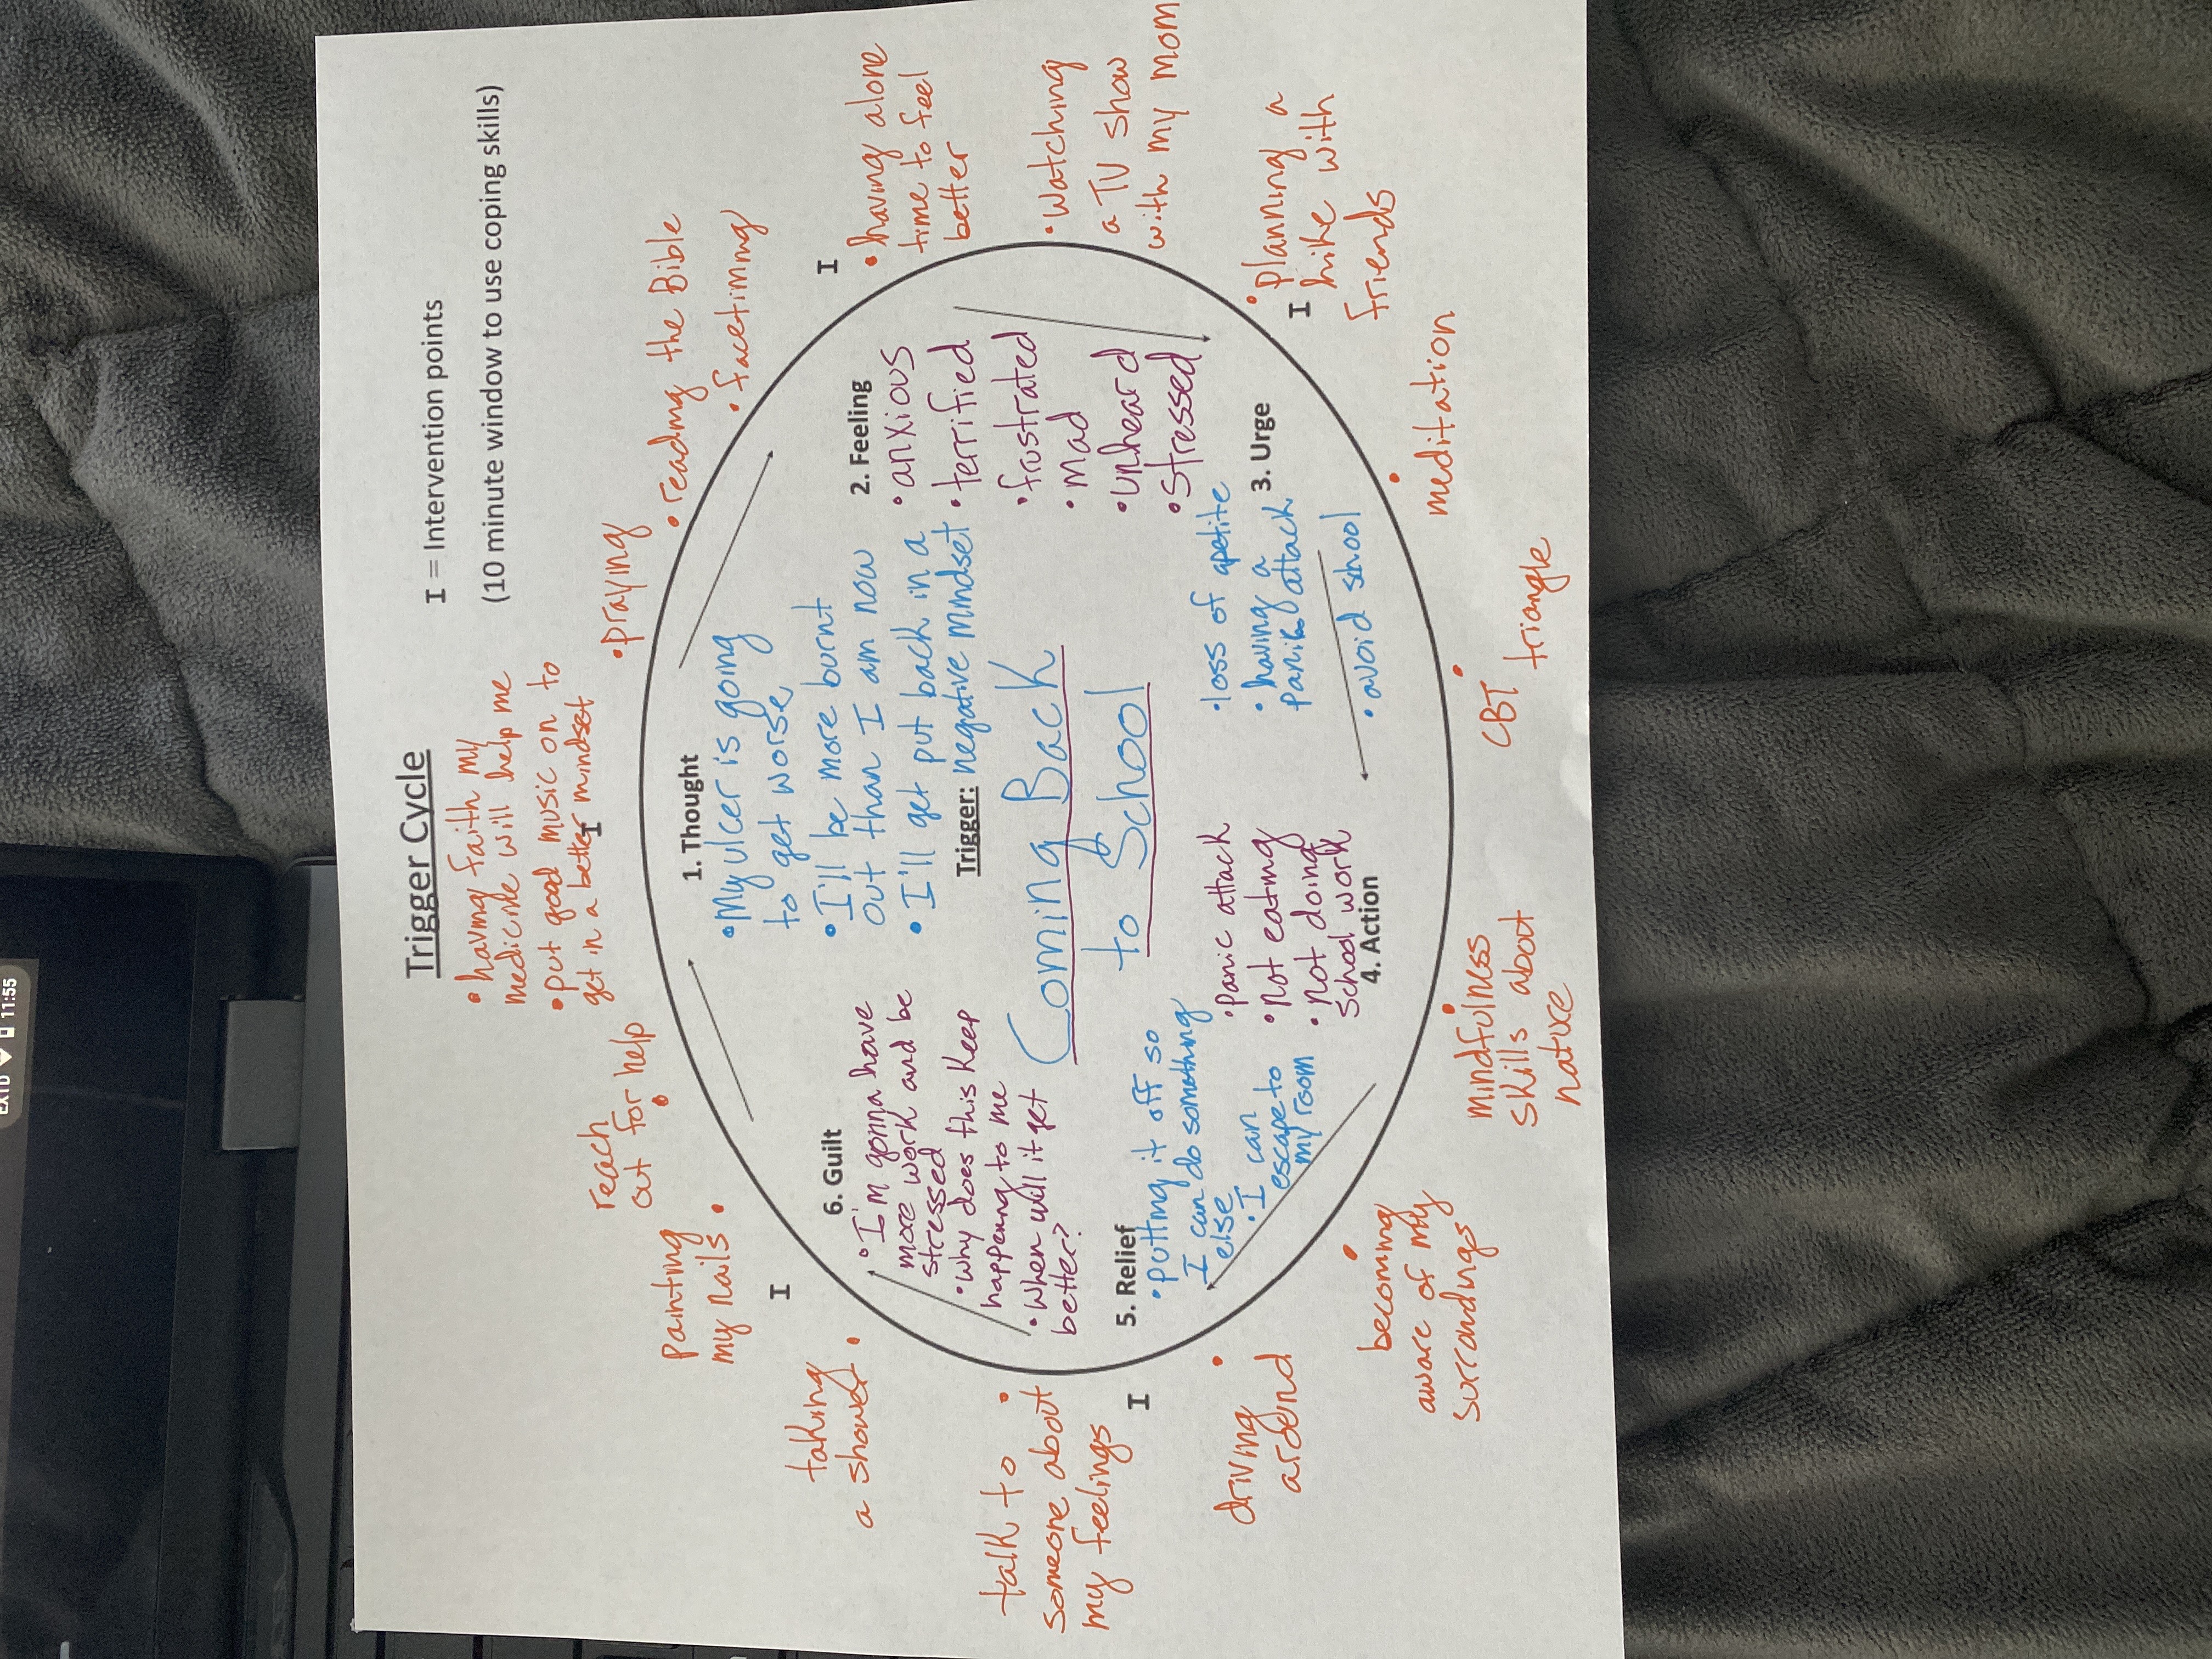 EXTD 11:55
Trigger Cycle
I = Intervention points
(10 minute window to use coping skills)
• having faith my
medicine will help me
• put good music on to
get in a better mindset
I
• praying
• reading the Bible
• facetiming
I
• having alone
time to feel
better
• Watching
a TV show
with my mom
• planning a
hike with
friends
I
• meditation
• CBT triangle
• mindfulness
skills about
nature
• becoming
aware of my
surrondings
• driving
around
I
• talk to
someone about
my feelings
• taking
a shower
I
• Painting
my nails
• reach
out for help
1. Thought
• My ulcer is going
to get worse
• I'll be more burnt
out than I am now
• I'll get put back in a
negative mindset
Trigger:
Coming Back
to School
2. Feeling
• anxious
• terrified
• frustrated
• mad
• unheard
• stressed
3. Urge
• loss of apetite
• having a
panic attack
• avoid shool
4. Action
• panic attack
• Not eating
• Not doing
school work
5. Relief
• Putting it off so
I can do something
else
• I can
escape to
my room
6. Guilt
• I'm gonna have
more work and be
stressed
• Why does this keep
happening to me
• When will it get
better?